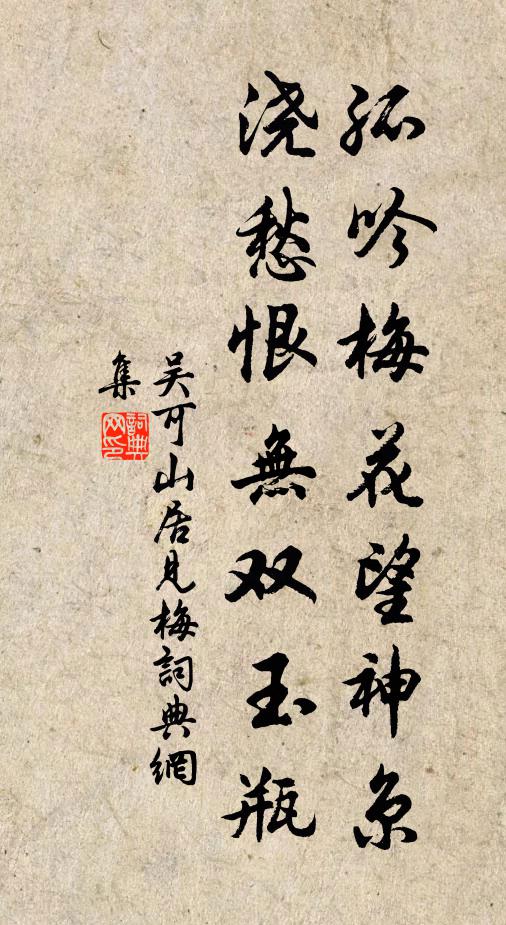 孤吟梅花望神京
浇愁恨無双玉瓶
吴可山居見梅詞典網
集
詞典
网印